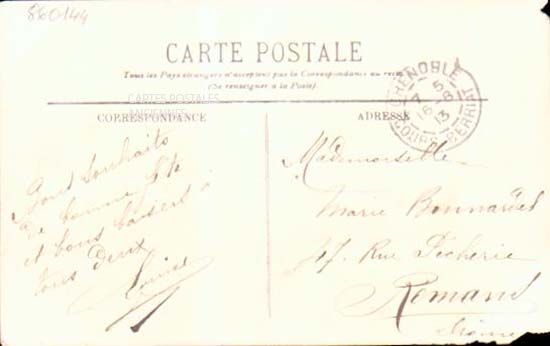 860144
CARTE POSTALE
Tous les Pays étrangers n'acceptent pas la Correspondance au recto
(Se renseigner à la Poste)
CARTES POSTALES
ANCIENNES
CORRESPONDANCE
Bons Souhaits
de bonne fête
et bons baisers à
tous deux
Louise
ADRESSE
Mademoiselle
Marie
47 Rue Pêcherie
Romans
Drôme
GRENOBLE
COURS BERRIAT
16
5-8
13